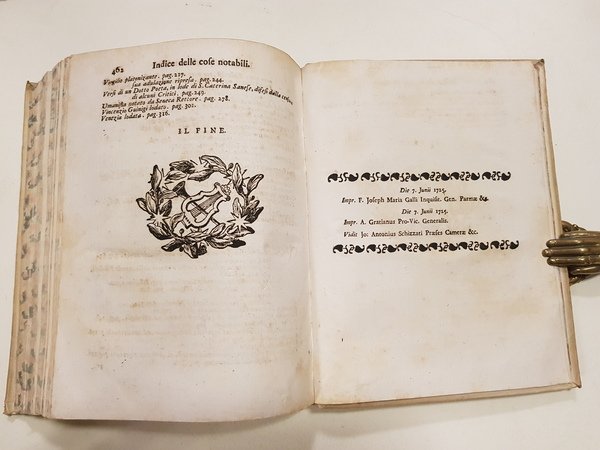 462
Indice delle cose notabili.
Virgilio platonizante. pag. 227.
sua adulazione ripresa. pag. 244.
Versi di un Dotto Poeta, in lode di S. Caterina Sanese, difesi dalla censura
di alcuni Critici. pag. 249.
Umanista notato da Seneca Rettore. pag. 278.
Vincenzio Guinigi lodato. pag. 302.
Venezia lodata. pag. 316.
IL FINE.
Die 7. Junii 1725.
Impr. F. Joseph Maria Galli Inquisit. Gen. Parmæ &c.
Die 7. Junii 1725.
Impr. A. Gratianus Pro-Vic. Generalis.
Vidit Jo: Antonius Schizzati Præses Cameræ &c.